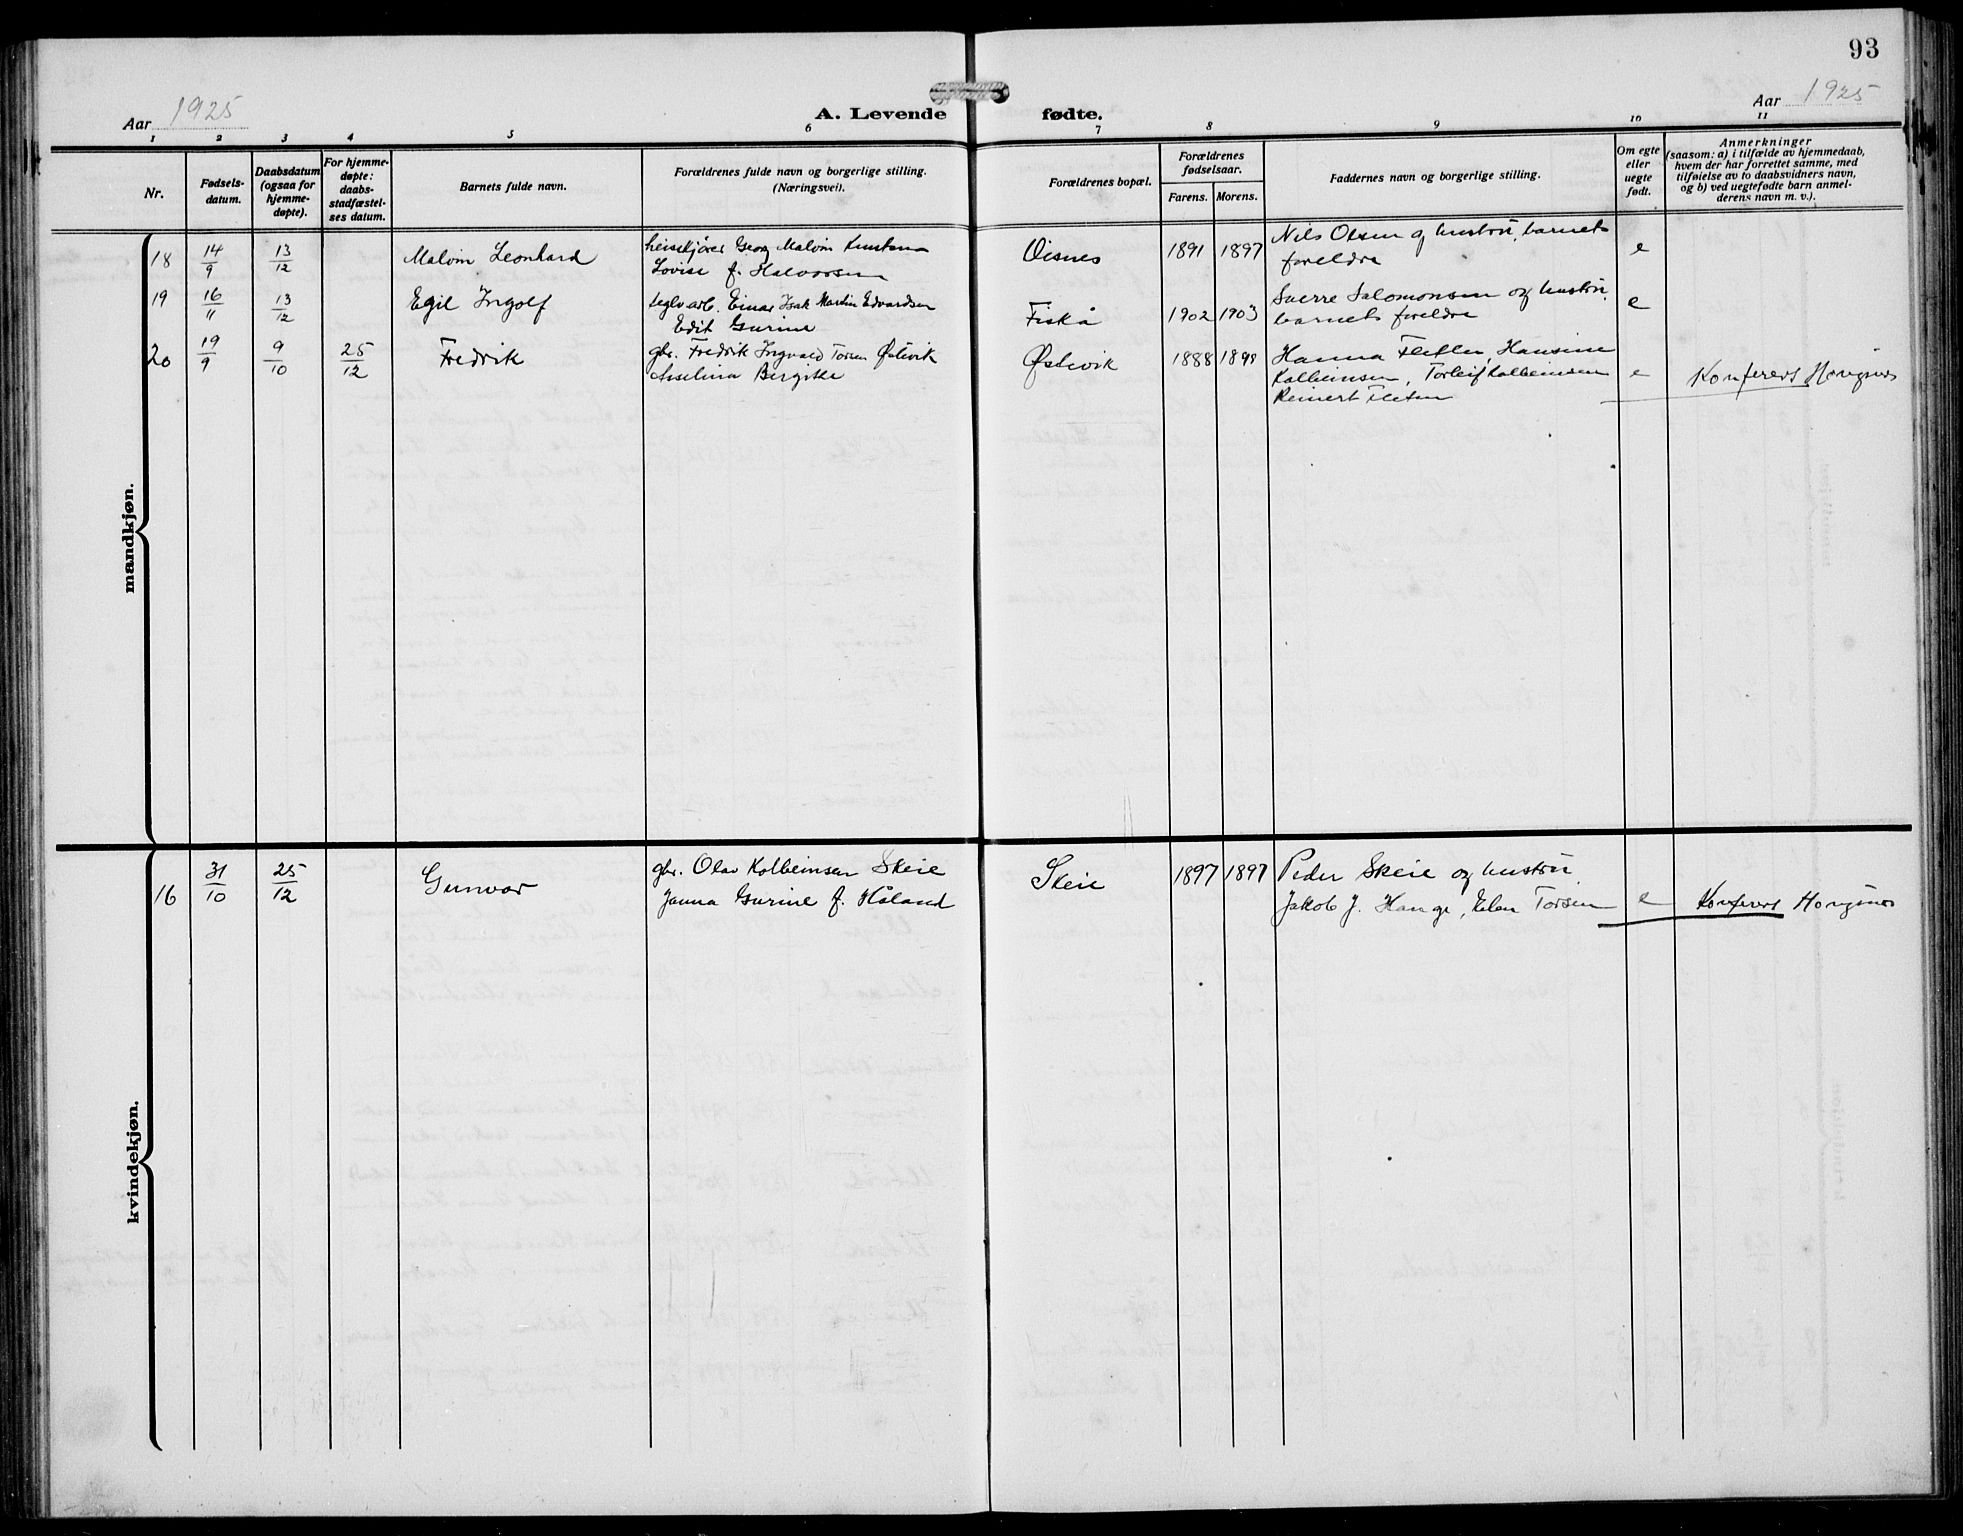 93
Aar 1925
A. Levende fødte.
Aar 1925
1 2 3 4 5 6 7 8 9 10 11
Nr.
Fødsels-
datum.
Daabsdatum
(ogsaa for
hjemme-
døpte).
For hjemme-
døpte:
daabs-
stadfæstel-
ses datum.
Barnets fulde navn.
Forældrenes fulde navn og borgerlige stilling.
(Næringsvei).
Forældrenes bopæl.
Forældrenes
fødselsaar.
Farens. Morens.
Faddernes navn og borgerlige stilling.
Om egte
eller
uegte
født.
Anmerkninger
(saasom: a) i tilfælde av hjemmedaab,
hvem der har forrettet samme, med
tilføielse av to daabsvidners navn,
og b) ved uegtefødte barn anmel-
derens navn m. v.).
mandkjøn.
18 14/9 13/12 Malvin Leonhard
Georg Malvin
Lovise f. Halvorsen
Øisnes 1891 1897
Nils Olsen og hustru, barnets
foreldre
e
19 16/11 13/12 Egil Ingolf
teglv.arb. Einar Isak Martin Edvardsen
Edit Gurine
Fiskå 1902 1903
Sverre Salomonsen og hustru,
barnets foreldre
e
20 19/9 9/10 25/12 Fredrik
gbr. Fredrik Ingvald Torsen Østevik
Asselina Bergitte
Østevik 1888 1898
Hanna Hansine
Kolbeinsen, Torleif Kolbeinsen
Reinert
e
Konferer
kvindekjøn.
16 31/10 25/12 Gunvor
gbr. Olav Kolbeinsen Skeie
Janna Gurine f. Håland
Skeie 1897 1897
Peder Skeie og hustru
Jakob J. Hauge, Elen Torsen
e
Konferer